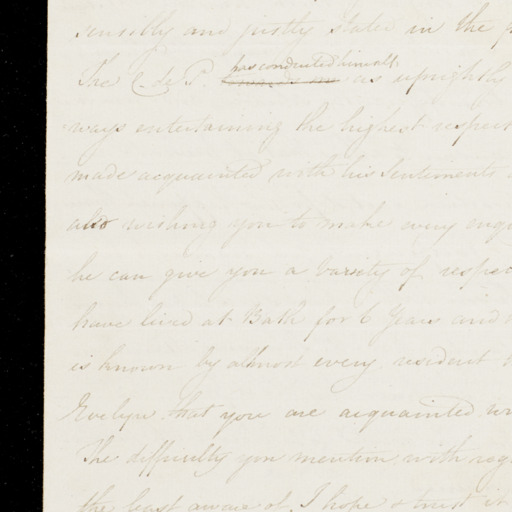 sensibly and justly stated in the
has conducted himself
The C. de P. as uprightly
ways entertaining the highest respect
made acquainted with his Sentiments
also wishing you to make every
he can give you a variety of
have lived at Bath for 6 Years and
is known by almost every resident
Evelyn that you are acquainted
The difficulty you mention with
the least aware of, I hope & trust it